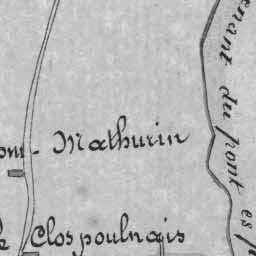 Mathurin
Clos poulnais
enant du pont es